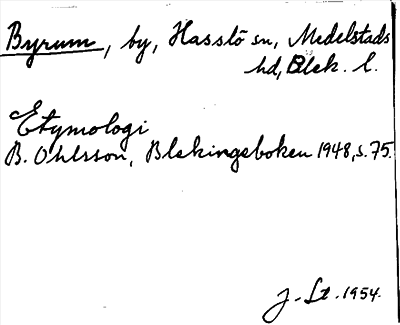 Byrum, by, Hasslö sn, Medelstads
hd, Blek. l.
Etymologi
B. Ohlsson, Blekingeboken 1948, s. 75.
J. St. 1954.